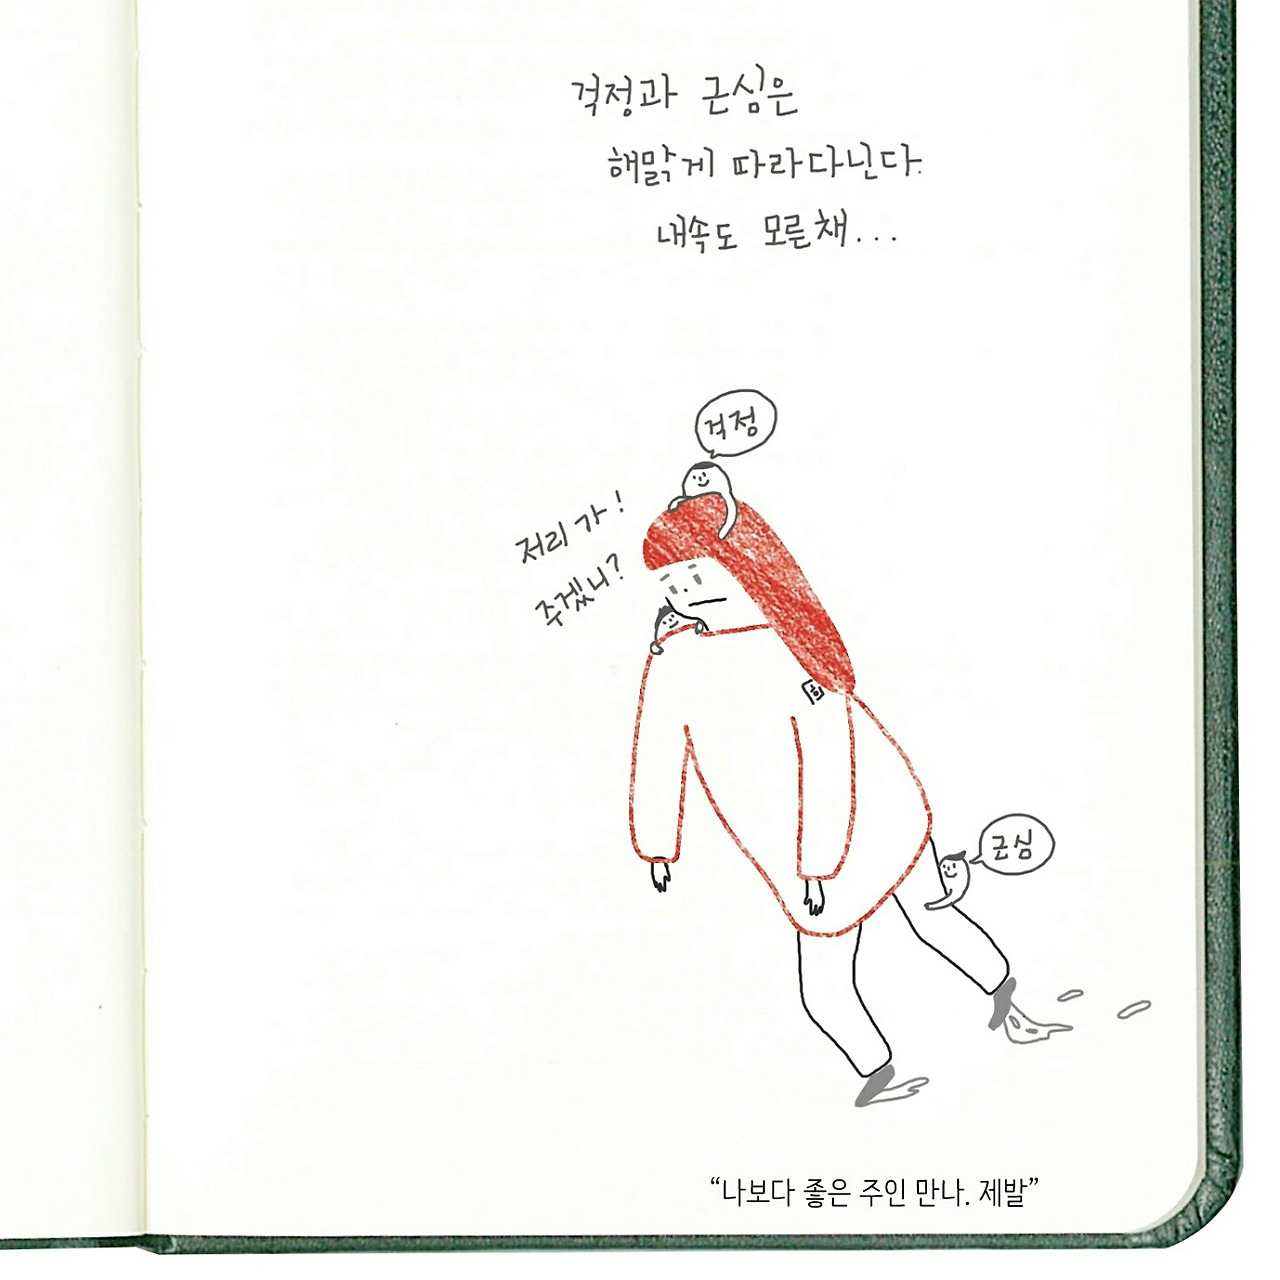 걱정과 근심은
해맑게 따라다닌다.
내속도 모른채...
걱정
저리 가!
주겠니?
희
근심
“나보다 좋은 주인 만나. 제발”